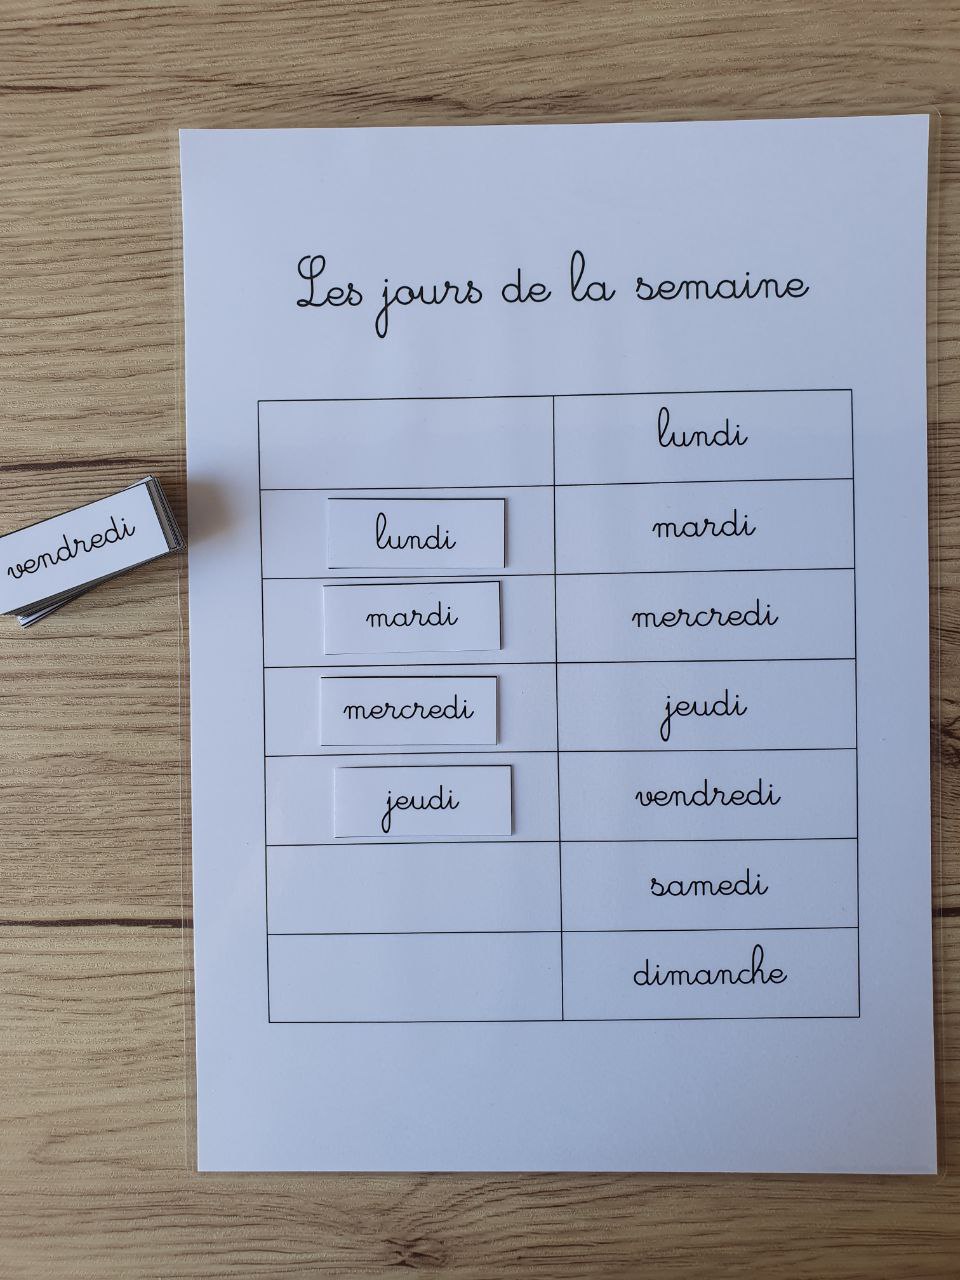 Les jours de la semaine
lundi
lundi mardi
mardi mercredi
mercredi jeudi
jeudi vendredi
samedi
dimanche
vendredi